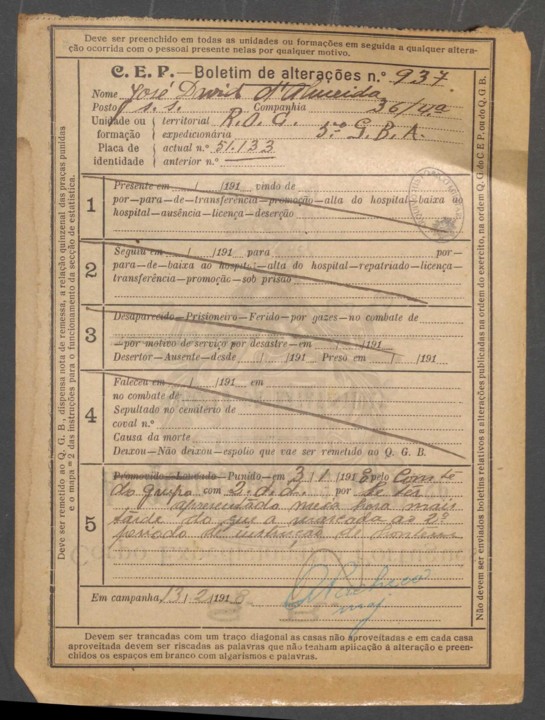 Deve ser preenchido em todas as unidades ou formações em seguida a qualquer altera-
ção ocorrida com o pessoal presente nelas por qualquer motivo.
C. E. P.—Boletim de alterações n.º 937.
Nome José David d'Almeida
Posto s. s. Companhia 36/4ª
Unidade ou formação territorial R.A.
expedicionária 5º G. B. A.
Placa de identidade actual n.º 51.133
anterior n.º
1
Presente em / /191 vindo de
por—para—de—transferência—promoção—alta do hospital—baixa ao
hospital—ausência—licença—deserção
2
Seguiu em / /191 para por—
para—de—baixa ao hospital—alta do hospital—repatriado—licença—
transferência—promoção—sob prisão
3
Desaparecido—Prisioneiro—Ferido—por gazes—no combate de
—por motivo de serviço por desastre—em / /191
Desertor—Ausente—desde / /191 Preso em / /191
4
Faleceu em / /191 em
no combate de
Sepultado no cemitério de
coval n.º
Causa da morte
Deixou—Não deixou—espólio que vae ser remetido ao Q. G. B.
5
Promovido—Louvado—Punido—em 3/1/1918 pelo Com.te
do grupo com por se ter
apresentado meia hora mais
tarde do que a marcada ao 2º
periodo de instrução de hontem
Em campanha, 13/2/1918
Pacheco
maj
Devem ser trancadas com um traço diagonal as casas não aproveitadas e em cada casa
aproveitada devem ser riscadas as palavras que não tenham aplicação à alteração e preen-
chidos os espaços em branco com algarismos e palavras.
Deve ser remetido ao Q. G. B., dispensa nota de remessa, a relação quinzenal das praças punidas
e o mapa n.º 2 das instruções para o funcionamento da secção de estatística.
Não devem ser enviados boletins relativos a alterações publicadas na ordem do exercito, na ordem Q. G. do C. E. P. ou do Q. G. B.